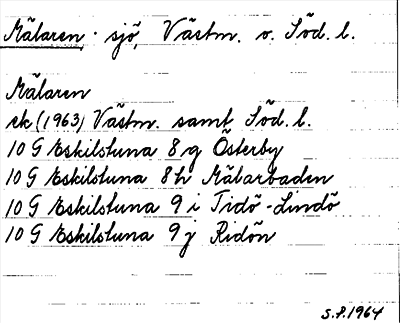 Mälaren · sjö, Västm. o. Söd. l.
Mälaren
ek (1963) Västm. samt Söd. l.
10 G Eskilstuna 8 g Österby
10 G Eskilstuna 8 h Mälarbaden
10 G Eskilstuna 9 i Tidö-Lindö
10 G Eskilstuna 9 j Ridön
S.P. 1964